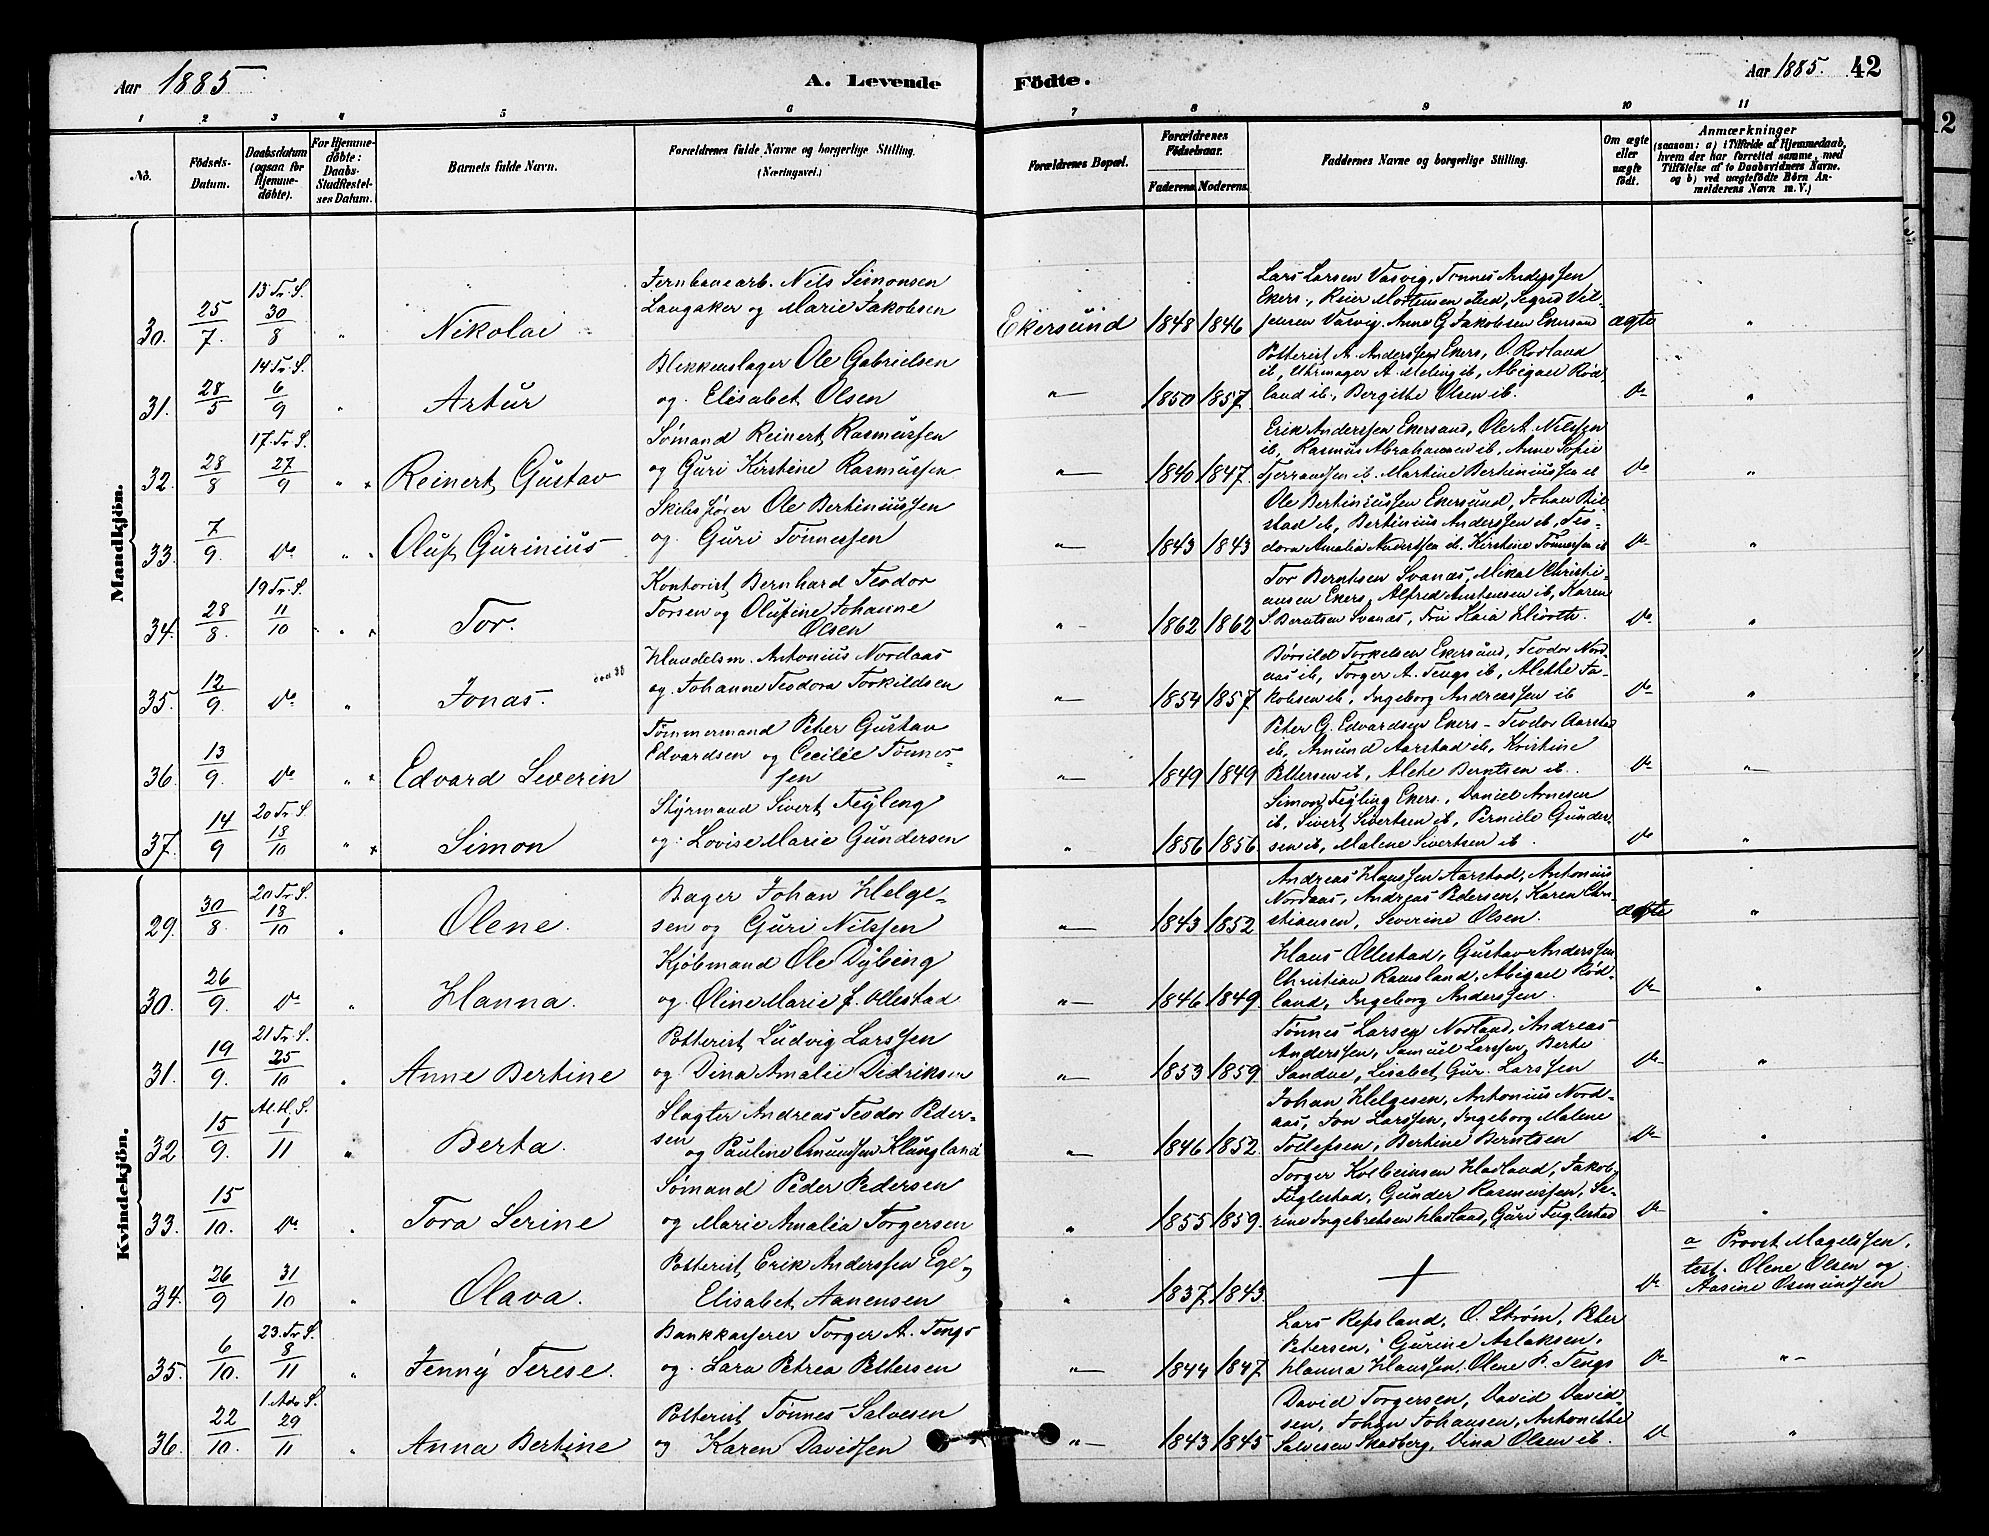 Aar 1885
A. Levende
Födte.
Aar 1885. 42
1 2 3 4 5 6 7 8 9 10 11
No.
Födsels-Datum.
Daabsdatum (ogsaa for Hjemme-döbte).
For Hjemme-döbte: Daabs-Stadfæstel-ses Datum.
Barnets fulde Navn.
Forældrenes fulde Navne og borgerlige Stilling. (Næringsvei.)
Forældrenes Bopæl.
Forældrenes Födselsaar.
Faderens. Moderens.
Faddernes Navne og borgerlige Stilling.
Om ægte eller uægte födt.
Anmærkninger
(saasom: a) i Tilfælde af Hjemmedaab,
hvem der har forrettet samme, med
Tilföielse af to Daabsvidners Navne,
og b) ved uægtefödte Börn An-
melderens Navn m. V.)
Mandkjön.
13 Tr. S.
30. 25/7 30/8 " Nikolai
Jernbanearb. Nils Simonsen
Langaker og Marie Jakobsen
Ekersund 1848 1846
Lars Larsen Vasvig, Tønnes Anderssen
Ekers., Reier Mortensen
Vasvig, Anne G Jakobsen Ekersund
ægte "
14 Tr. S.
31. 28/5 6/9 " Artur
Blikkenslager Ole Gabrielsen
og Elisabet Olsen
" 1850 1857
Potterist A. Anderssen Ekers, O. Rødland
ib, Uhrmager A. Meling ib, Abigael Rød-
land ib., Bergitte Olsen ib.
do "
17. Tr. S.
32. 28/8 27/9 " Reinert Gustav
Sømand Reinert Rasmussen
og Guri Kirstine Rasmussen
" 1840 1847
Erik Anderssen Ekersund, Ole A. Nilssen
ib, Rasmus Abrahamsen ib, Anne Sofie
ib. Martine Bertiniussen ib
do "
33. 7/9 do " Oluf Gurinius
Skibsfører Ole Bertiniussen
og Guri Tønnessen
" 1843 1843
Ole Bertiniussen Ekersund, Johan
ib, Bertinius Anderssen ib, Teo-
dora Amalia ib. Kirstine Tønnessen ib
do "
19 Tr. S.
34. 28/8. 11/10 " Tor.
Kontorist Bernhard Teodor
Torsen og Olufine Johanne
Olsen
" 1862 1862
Tor Berntsen Svanæs, Mikal Christi-
ansen Ekers, Alfred ib, Karen
S. Berntsen Svanæs, Fru Kaia
do "
35. 12/9 do " Jonas.
Handelsm. Antonius Nordaas
og Johanne Teodora Torkildsen
" 1854 1857
Børsild Torkelsen Ekersund, Teodor Nord-
aas ib, Torger A. Tengs ib, Alethe Ja-
kobsen ib, Ingeborg Andreassen ib
do "
36 13/9. do " Edvard Severin
Tømmermand Peter Gustav
Edvardsen og Cecilie Tønnes-
sen
" 1849 1849
Peter G. Edvardsen Ekers - Teodor Aarstad
ib, Amund Aarstad ib, Kristine
Pettersen ib, Alethe Berntsen ib.
do "
20 Tr. S.
37. 14/9 18/10 " Simon
Styrmand Sivert Feyling
og Lovise Marie Gundersen
" 1856 1856
Simon Feyling Ekers., Daniel Arnesen
ib, Sivert Sivertsen ib, Pernille Gunder-
sen ib, Malene Sivertsen ib.
do "
Kvindekjön.
20 Tr. S.
29. 30/8. 18/10 " Olene.
Bager Johan Helge-
sen og Guri Nilssen
" 1843 1852
Andreas Hanssen Aarstad, Antonius
Nordaas, Andreas Pedersen, Karen Chri-
stiansen, Severine Olsen.
ægte "
30. 26/9. do " Hanna.
Kjøbmand Ole Dybing
og Oline Marie J. Ollestad
" 1846 1849
Hans Ollestad, Gustav Anderssen
Christian Ramsland, Abigael Rød-
land, Ingeborg Anderssen.
do "
21 Tr. S.
31. 19/9. 25/10 " Anne Bertine
Potterist Ludvig Larssen
og Dina Amalie Didriksen
" 1853 1859
Tønnes Larsen Norland, Andreas
Anderssen, Samuel Larssen, Berte
Sandve, Lisabet Gur. Larssen
do "
Al. H. S.
32 15/9. 1/11 " Berta.
Slagter Andreas Teodor Peder-
sen
og Pauline Omundsen Klungland
" 1846 1852
Johan Helgesen, Antonius Nord-
aas, Jon Larssen, Ingeborg Malene
Tollefsen, Bertine Berntsen
do "
33. 15/10. do " Tora Serine
Sømand Peder Pedersen
og Marie Amalia Torgersen
" 1855 1859
Torger Kolbeinsen Hadland, Jakob
Fuglestad, Gunder Rasmussen, Se-
rine Ingebretsen Hadland, Guri Fuglestad
do "
34. 26/9 31/10 " Olava.
Potterist Erik Anderssen Ege og
Elisabet Aanensen
" 1837 1843
+
do
a Provst Magelssen.
test. Olene Olsen og
Aasine Osmundsen
23. Tr. S.
35. 6/10. 8/11 " Jenny Terese.
Bankkasserer Torger A. Tengs
og Lara Petrea Pettersen
" 1844 1847
Lars Repsland, O. Strøm, Peter
Petersen, Gurine Aslaksen,
Hanna Hanssen, Olene P. Tengs
do "
1 Adv S.
36. 22/10. 29/11 " Anna Bertine
Potterist Tønnes Salvesen
og Karen Davidsen
" 1843 1845
David Torgersen, David David-
sen, Johan Johansen, Antonette
Salvesen Skadberg, Dina Olsen ib.
do "